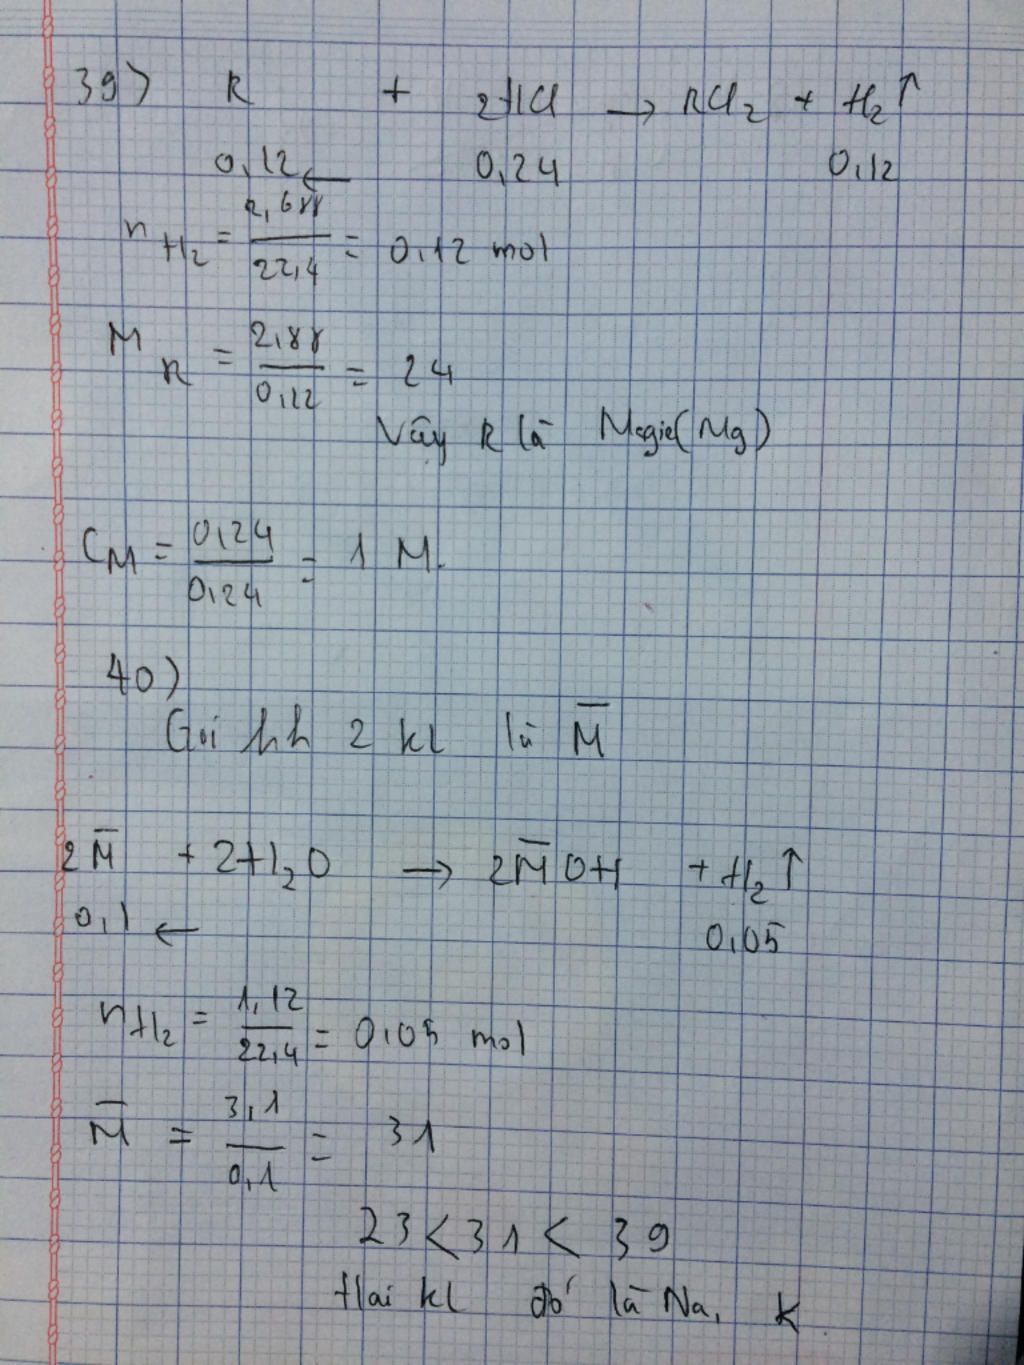 39) R + 2HCl → RCl₂ + H₂↑
0,12 ← 0,24 0,12
n H₂ = 2,688 / 22,4 = 0,12 mol
M R = 2,88 / 0,12 = 24
Vậy R là Magie (Mg)
CM = 0,24 / 0,24 = 1 M.
40)
Gọi hh 2 kl là M̅
2M̅ + 2H₂O → 2M̅OH + H₂↑
0,1 ← 0,05
nH₂ = 1,12 / 22,4 = 0,05 mol
M̅ = 3,1 / 0,1 = 31
23 < 31 < 39
Hai kl đó là Na, K